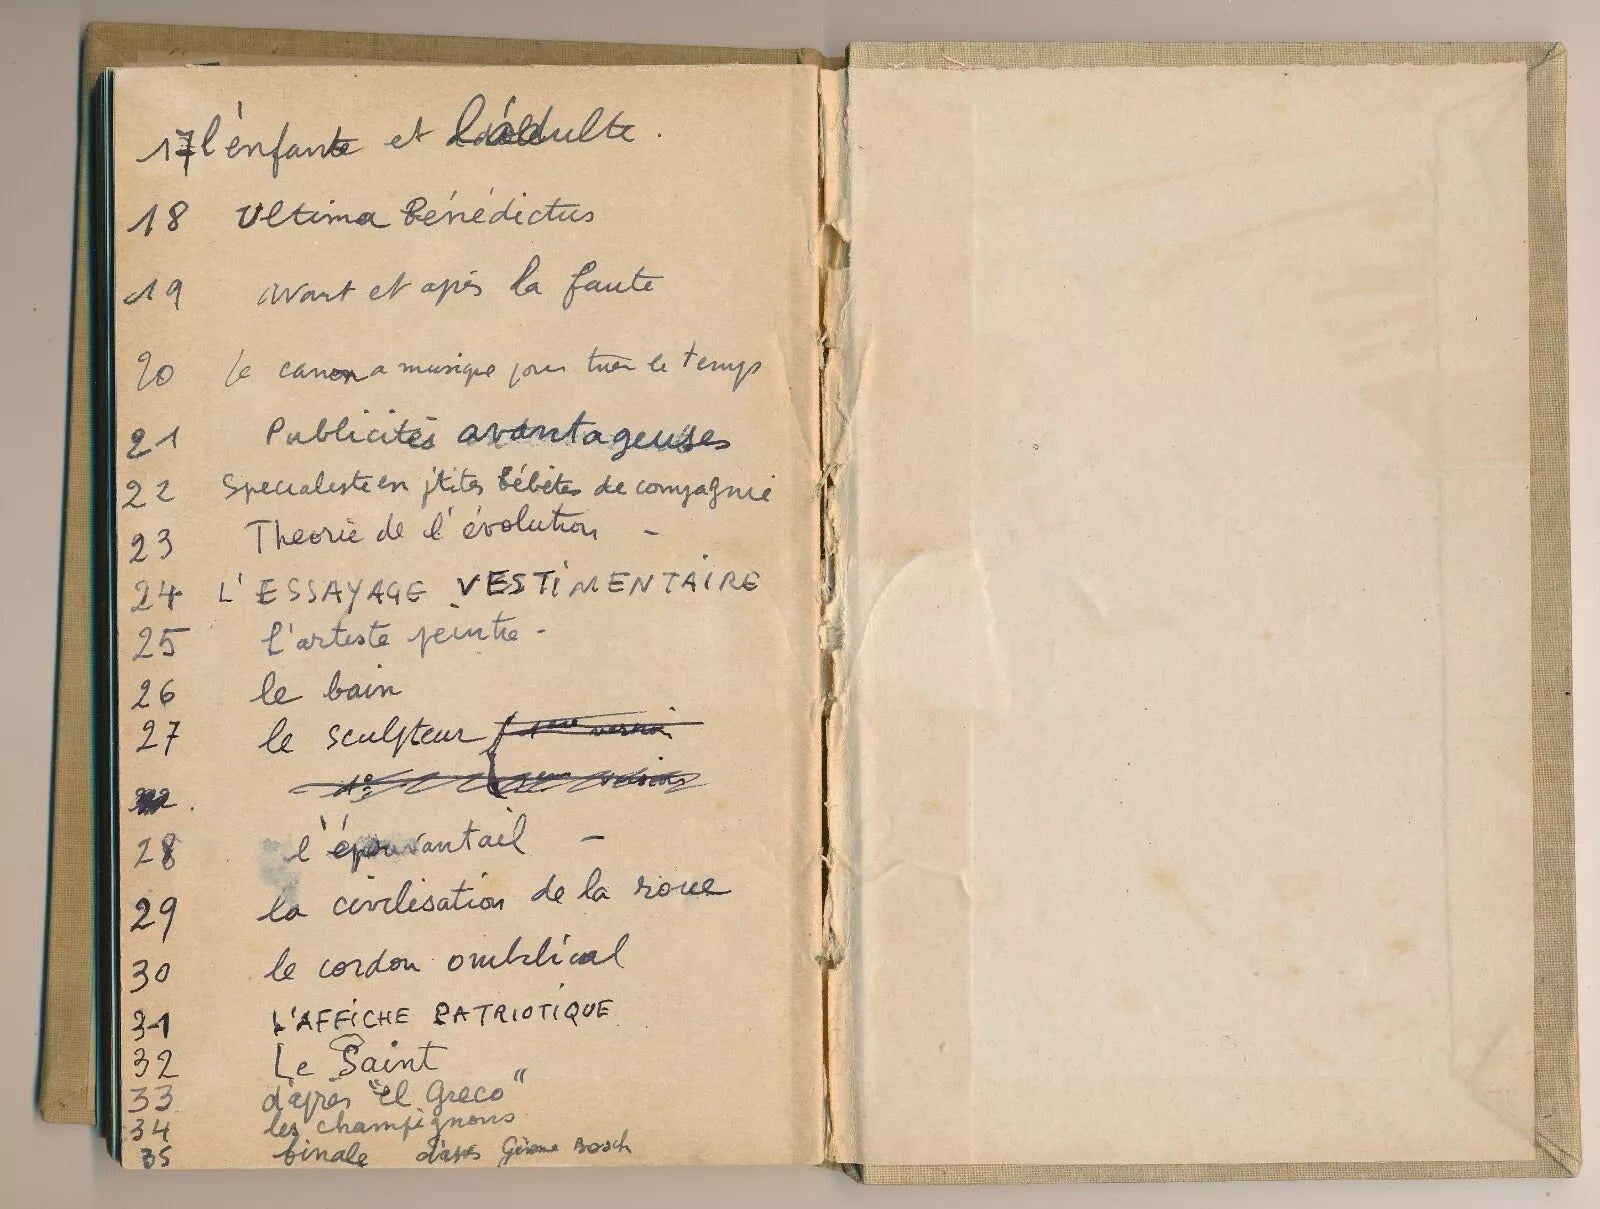 17 l'énfante et l'adulte.
18 Ultima Bénédictus
19 avant et après la faute
20 le canon a musique pour tuer le temps
21 Publicités avantageuses
22 Specialiste en p'tites bébètes de compagnie
23 Theorie de l'évolution -
24 L'ESSAYAGE VESTIMENTAIRE
25 l'artiste peintre -
26 le bain
27 le sculpteur
28 l'épouvantail -
29 la civilisation de la roue
30 le cordon omblical
31 L'AFFICHE PATRIOTIQUE
32 Le Saint
33 d'après "el Greco"
34 les champignons
35 finale d'après Gérome Bosch